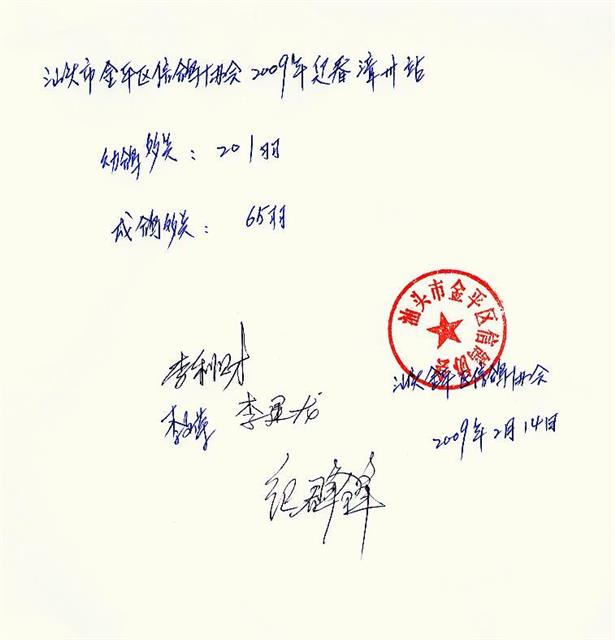 汕头市金平区信鸽协会2009年迎春漳州站
幼鸽够类：201羽
成鸽够类：65羽
汕头市金平区信鸽协会
李利财
汕头金平区信鸽协会
2009年2月14日